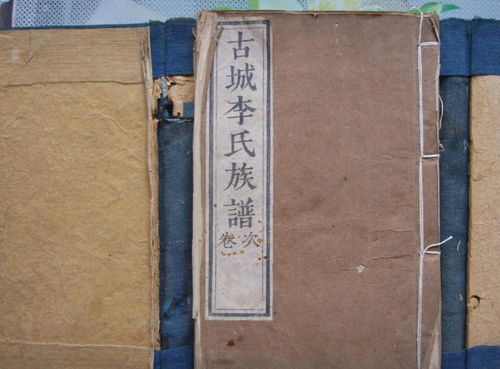 古城李氏族譜
卷次